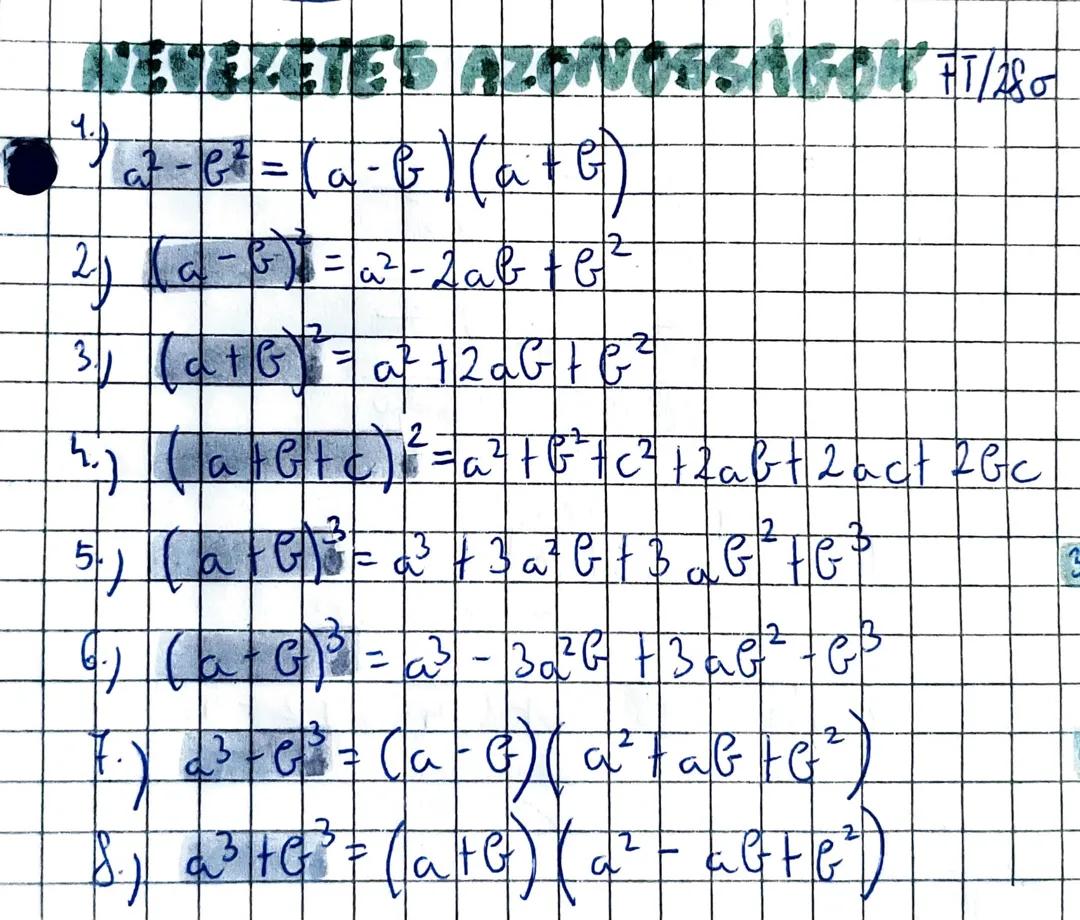 NEVEZETES AZONOSSÁGOK FT/28o
1.) a² - b² = (a - b)(a + b)
2.) (a - b)² = a² - 2ab + b²
3.) (a + b)² = a² + 2ab + b²
4.) (a + b + c)² = a² + b² + c² + 2ab + 2ac + 2bc
5.) (a + b)³ = a³ + 3a²b + 3ab² + b³
6.) (a - b)³ = a³ - 3a²b + 3ab² - b³
7.) a³ - b³ = (a - b)(a² + ab + b²)
8.) a³ + b³ = (a + b)(a² - ab + b²)